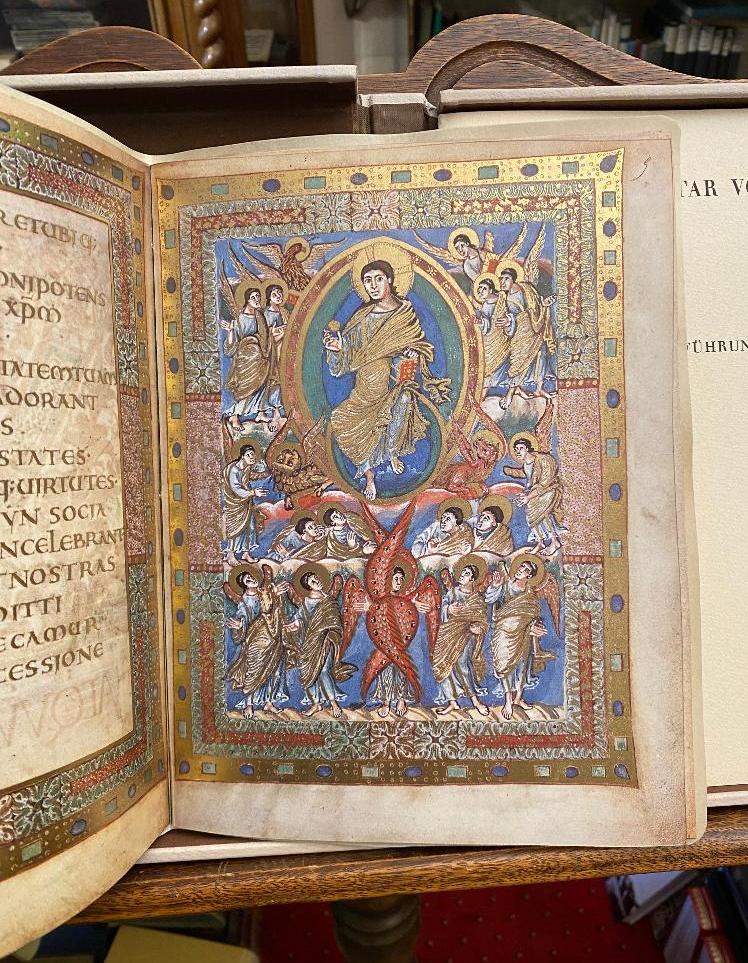 R ETUBIQ;
ONIPOTENS
XP̄M
TATEMTUAM
ADORANT
S·
STATES·
Q·UIRTUTES·
VN SOCIA
NCELEBRANT
TNOSTRAS
MITTI
ECAMUR
CESSIONE
TAR VO
FÜHRUN